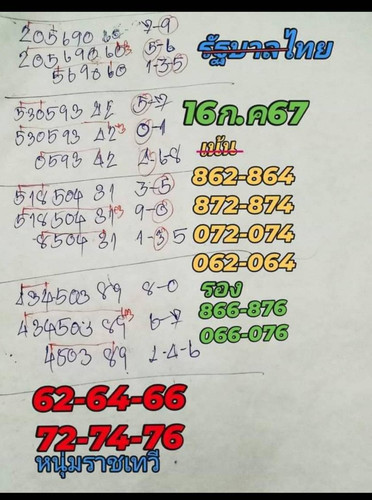 205690 60 7-9
รัฐบาลไทย
205690 60 5-6
569060 1-3-5
530593 42 5-7
16ก.ค67
530593 42 0-1
เน้น
0593 42 1-6-8
862-864
518504 31 3-5
872-874
518504 31 9-0
072-074
8504 31 1-3-5
062-064
434503 89 8-0
รอง
866-876
434503 89 6-7
066-076
4503 89 1-4-6
62-64-66
72-74-76
หนุ่มราชเทวี